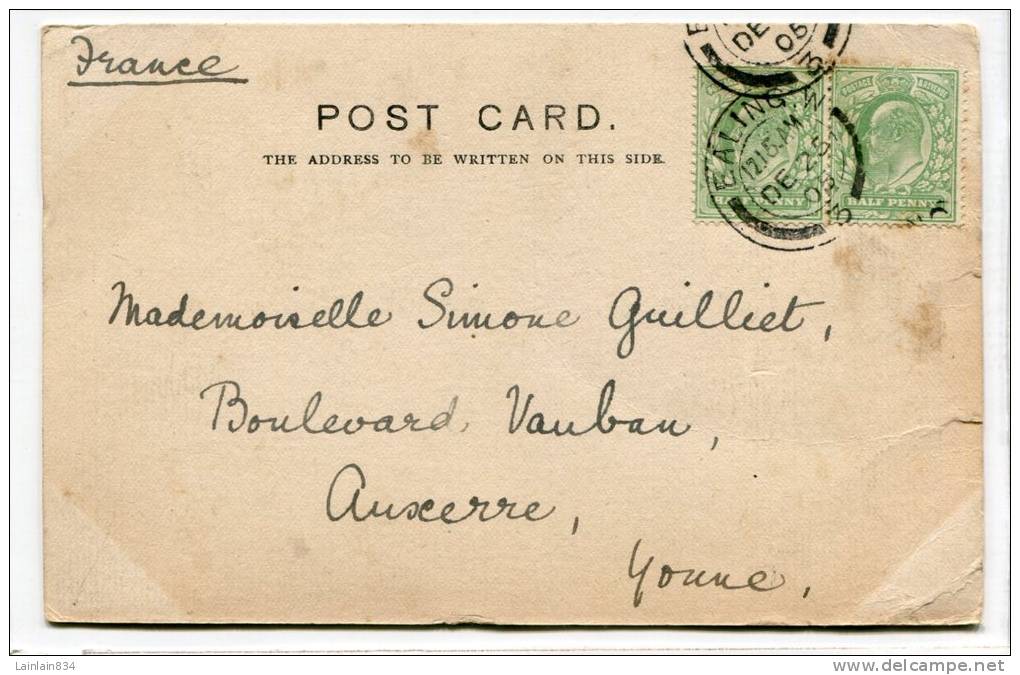 France
POST CARD.
THE ADDRESS TO BE WRITTEN ON THIS SIDE.
DE
05
EALING. W
12.15 AM
DE 25
05
POSTAGE & REVENUE
HALF PENNY
HALF PENNY
Mademoiselle Simone Guilliet,
Boulevard Vauban,
Auxerre,
Yonne,
Lainlain834
www.delcampe.net